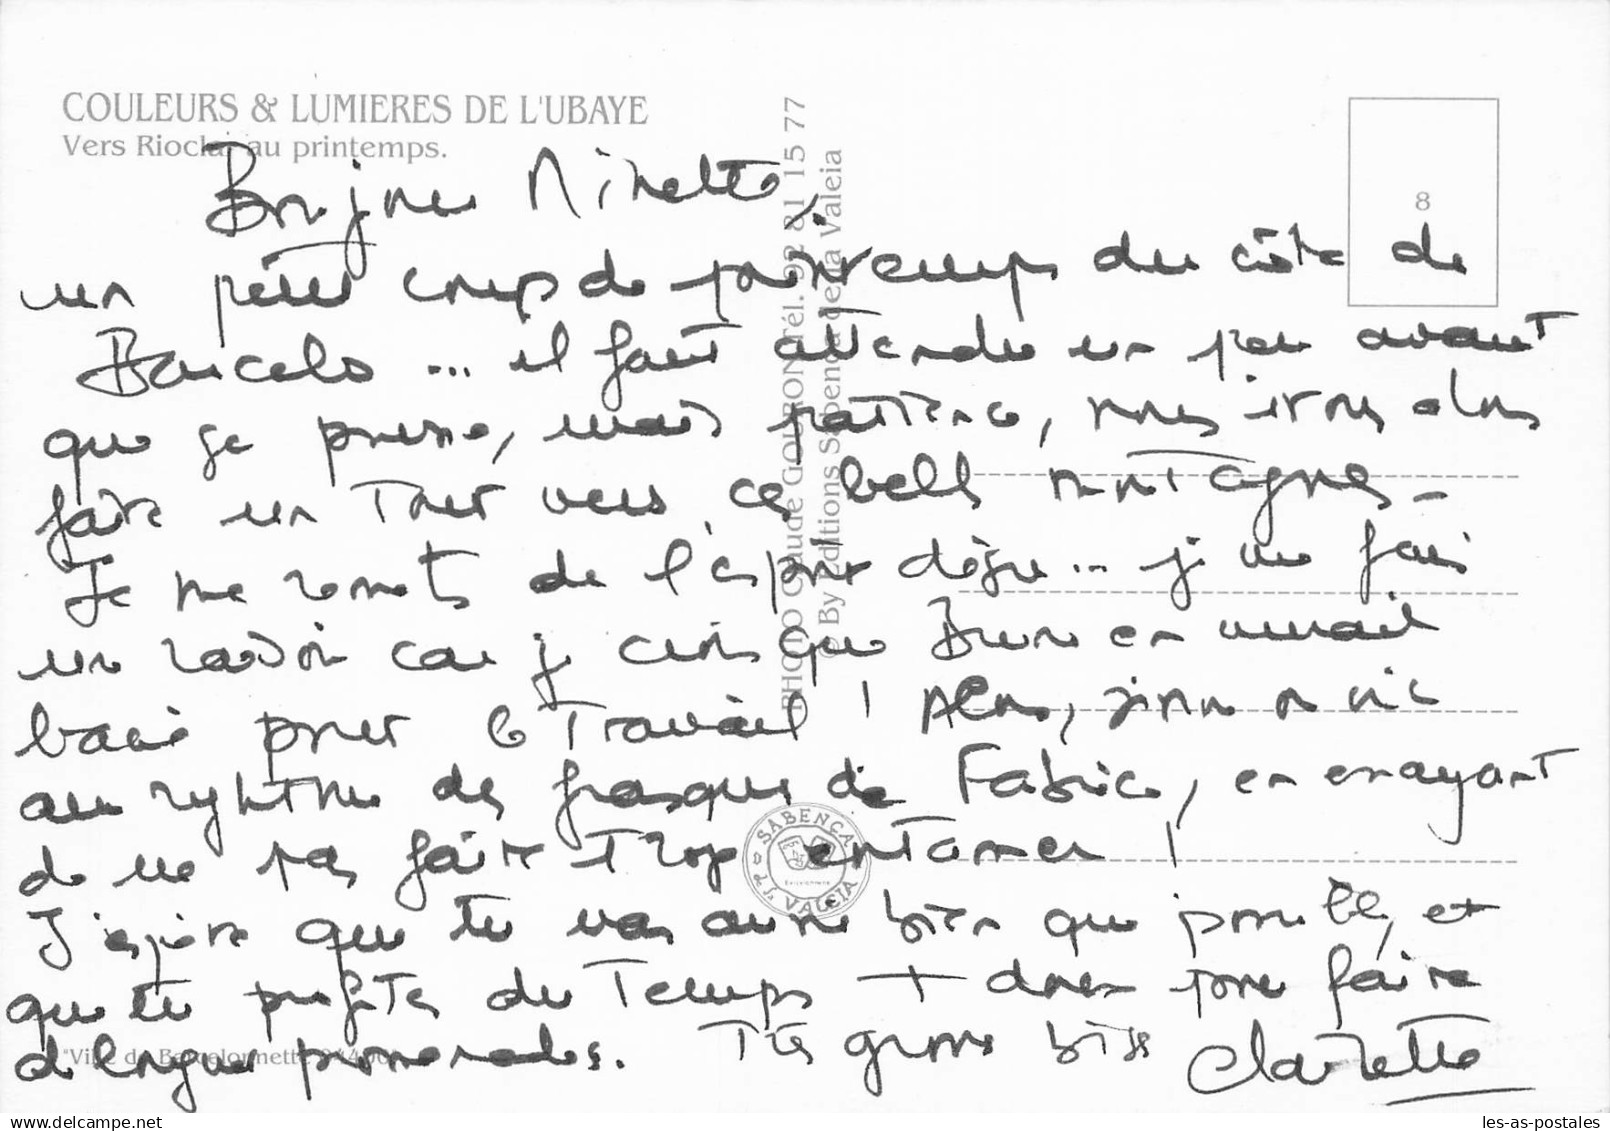 COULEURS & LUMIERES DE L'UBAYE
Vers Rioclar au printemps.
Bonjour Minette,
un petit coup de printemps du côté de
Barcelo ... il faut attendre un peu avant
que ça pousse, mais patience, nous irons alors
faire un tour vers ces belles montagnes -
Je me remets de l'espoir déçu ... j me fais
un car j crois que Bruno en
pour le travail ! Alors, sinon on vit
au rythme des frasques de Fabrice, en essayant
de ne pas faire trop entamer !
J'espère que tu vas aussi bien que possible, et
que tu profites du temps + doux pour faire
de longues promenades. Très grosse bise
Clairette
"Ville de Barcelonnette 04400"
PHOTO Claude GOURON Tél. 92 81 15 77
© By Editions Sabença de la Valeia
SABENÇA
VALEIA
8
les-as-postales